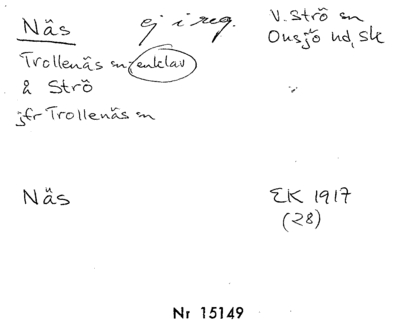 Näs ej i reg. V. Strö sn
Onsjö hd, Sk
Trollenäs sn, enklav
å Strö
jfr Trollenäs sn
Näs EK 1917
(28)
Nr 15149